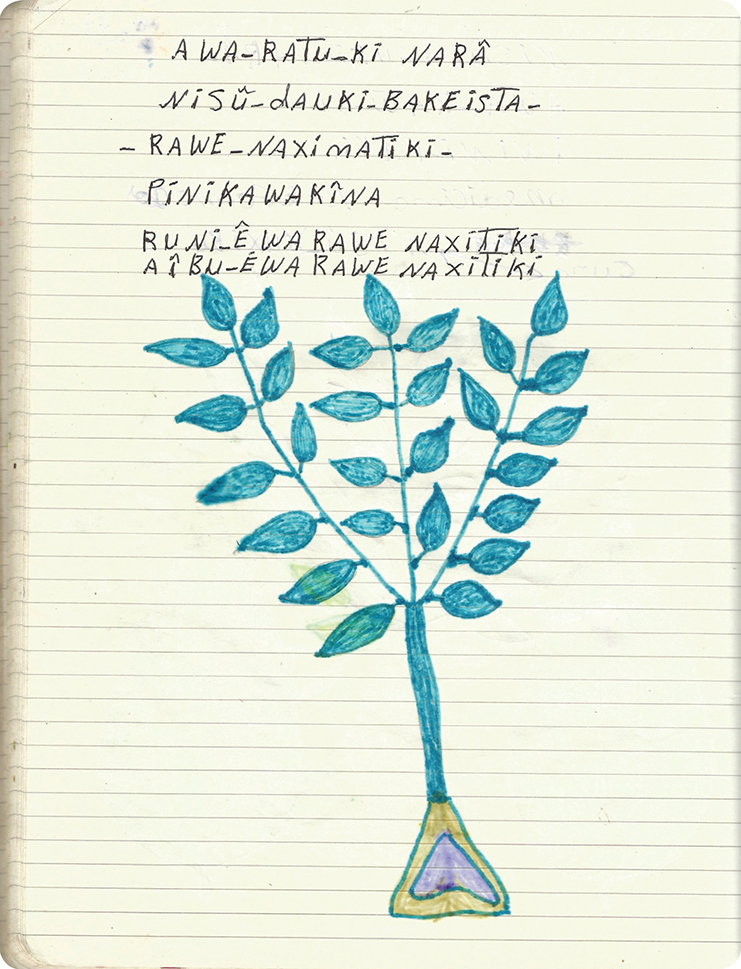 AWA-RATU-KI NARÂ
NISŨ-dAUKI-BAKEISTA-
- RAWE-NAXIMATIKI-
PINIKAWAKÎNA
RUNI-Ê WA RAWE NAXITIKI
AÎBU-ÊWA RAWE NAXITIKI